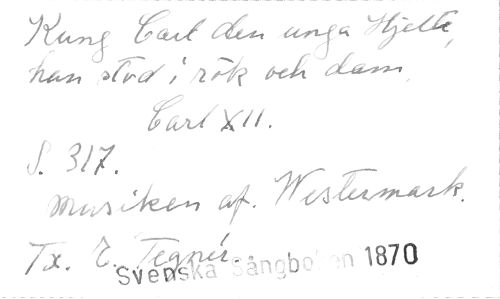 Kung Carl den unga Hjelte,
han stod i rök och dam.
Carl XII.
S. 317.
Musiken af. Westermark.
Tx. E. Tegnér.
Svenska Sångboken 1870